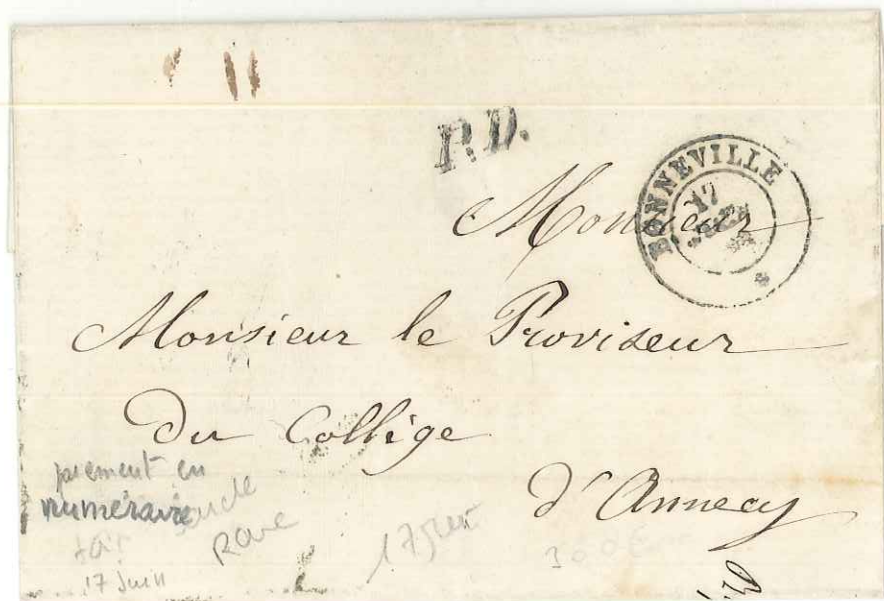 P.D.
BONNEVILLE
17
Monsieur
Monsieur le Proviseur
Du Collège
d'Annecy
paiement en
numéraire
Rare
17 juin
17 Juin